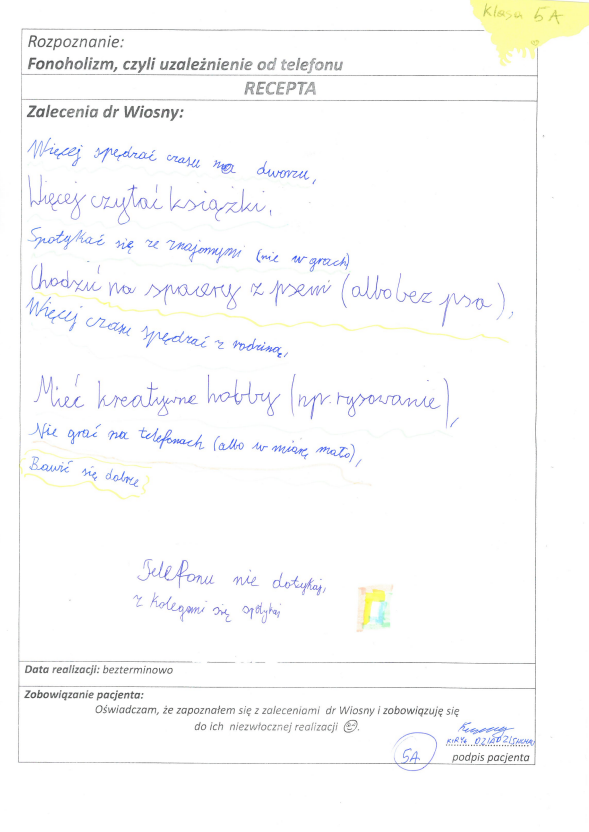 Klasa 5A
Rozpoznanie:
Fonoholizm, czyli uzależnienie od telefonu
RECEPTA
Zalecenia dr Wiosny:
Więcej spędzać czasu na dworzu,
Więcej czytać książki,
Spotykać się ze znajomymi (nie w grach)
Chodzić na spacery z psem (albo bez psa),
Więcej czasu spędzać z rodziną,
Mieć kreatywne hobby (np. rysowanie),
Nie grać na telefonach (albo w miarę mało),
Bawić się dobrze
Telefonu nie dotykaj,
z kolegami się spotykaj
Data realizacji: bezterminowo
Zobowiązanie pacjenta:
Oświadczam, że zapoznałem się z zaleceniami dr Wiosny i zobowiązuję się
do ich niezwłocznej realizacji 😊.
5A
podpis pacjenta